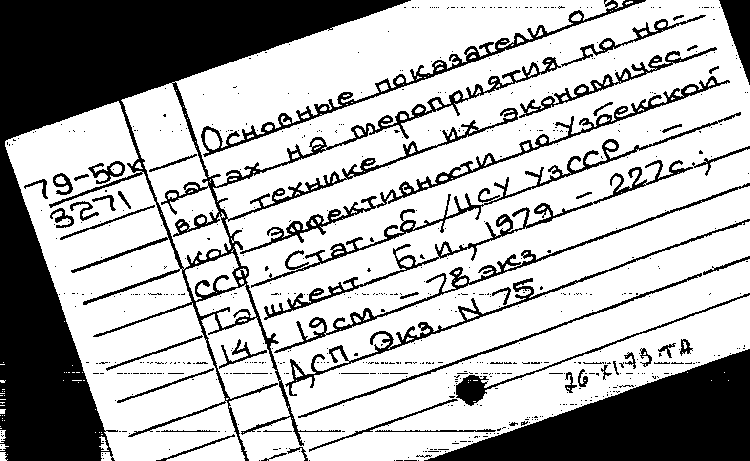 79-50к
3271
Основные показатели о за-
ратах на мероприятия по но-
вой технике и их экономичес-
кой эффективности по Узбекской
ССР: Стат. сб. /ЦСУ УзССР. –
Ташкент: Б. и., 1979. – 227с.;
14 x 19см. – 78 экз.
ДСП. Экз. N 75.
26.XI.79.ТА